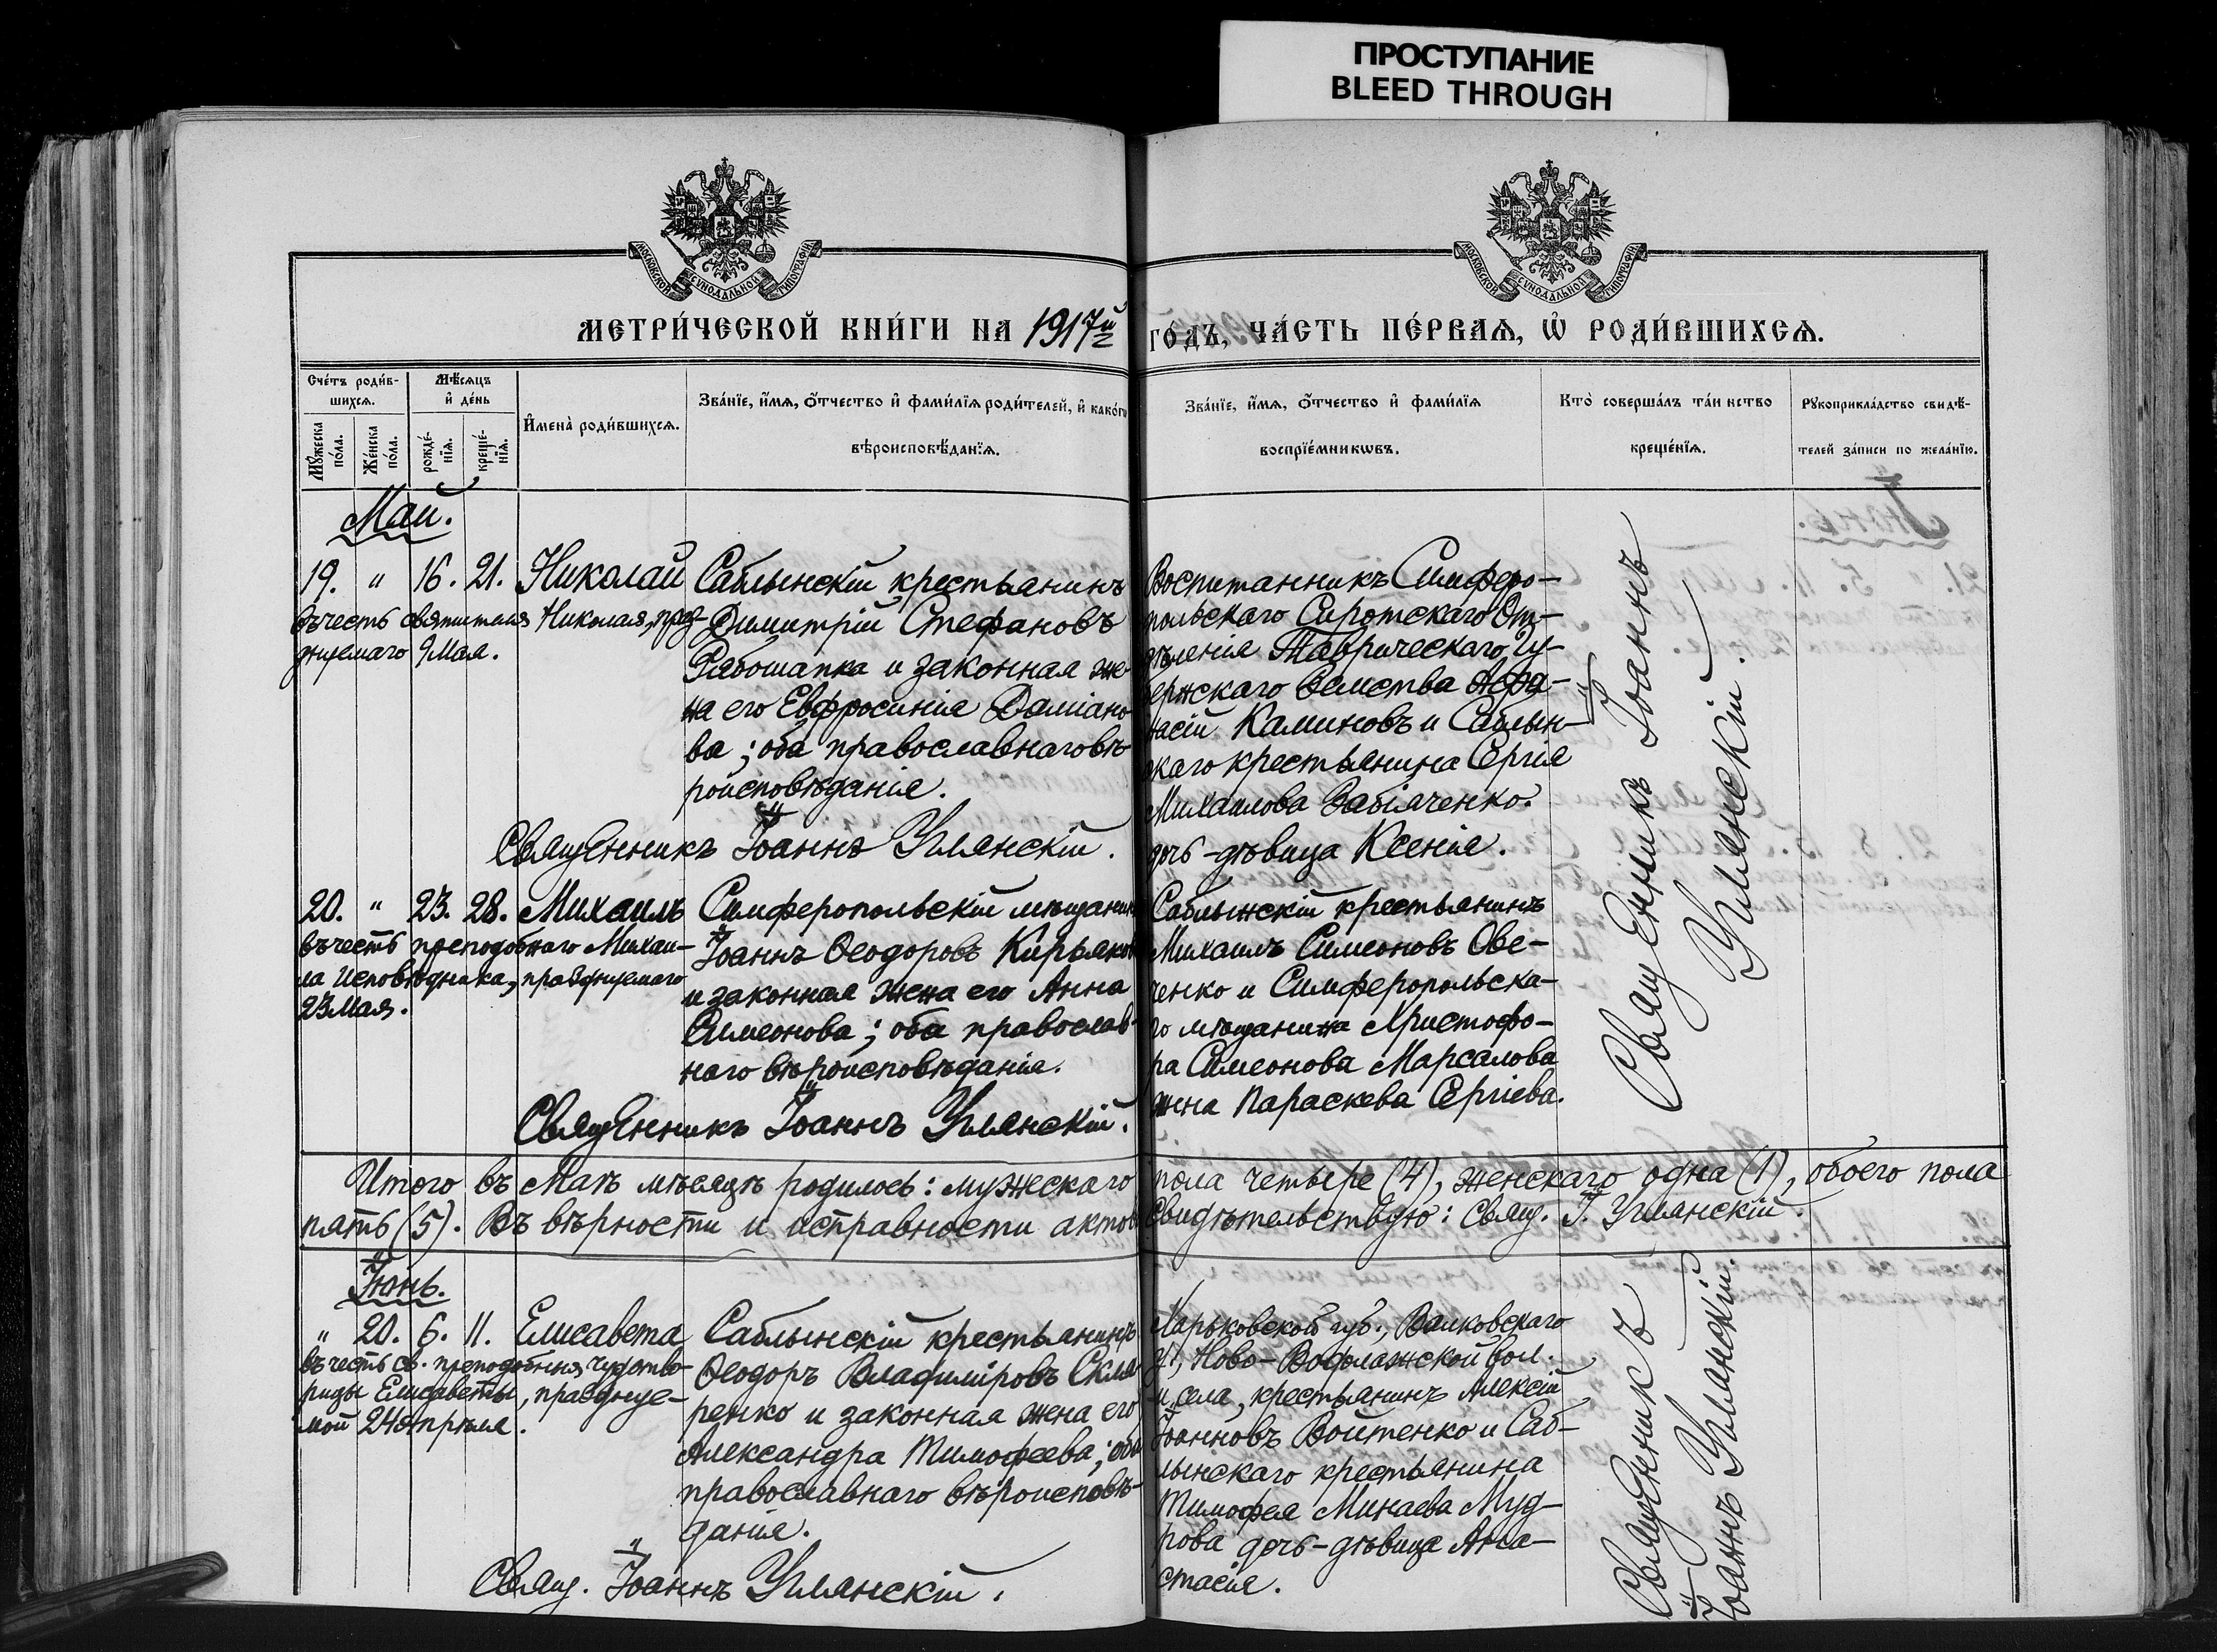 ПРОСТУПАНИЕ
BLEED THROUGH
МЕТРИ́ЧЕСКОЙ КНИ́ГИ НА 1917й
ГО́ДЪ, ЧА́СТЬ ПЕ́РВАѦ, Ѡ҆ РОДИ́ВШИХСѦ.
Сче́тъ роди́в-
шихсѧ.
Мѣ́сѧцъ
и҆ де́нь
Мꙋ́жеска по́ла.
Же́нска по́ла.
рожде́-нїѧ.
креще́-нїѧ.
И҆мена̀ роди́вшихсѧ.
Зва́нїе, и҆́мѧ, о҆́тчество и҆ фами́лїѧ роди́телей, и҆ како́гѡ
вѣроисповѣ́данїѧ.
Зва́нїе, и҆́мѧ, о҆́тчество и҆ фами́лїѧ
воспрїе́мникѡвъ.
Кто̀ соверша́лъ та́инство
креще́нїѧ.
Рꙋкоприкла́дство свидѣ́-
телей за́писи по жела́нїю.
Май.
19. " 16. 21. Николай
въ честь святителя Николая, празд-
днуемаго 9 Мая.
Саблынскій крестьянинъ
Димитрій Стефановъ
Рябошапка и законная же-
на его Евфросинія Даміано
ва; оба православнаго вѣ-
роисповѣданія.
Священникъ Іоаннъ Уманскій.
Воспитанникъ Симферо-
польскаго Сиротскаго От-
дѣленія Таврическаго Гу-
бернскаго Земства Афа-
насій Калиновъ и Саблын-
скаго крестьянина Сергія
Михаилова Забіяченко
дочь-дѣвица Ксенія.
Священникъ Іоаннъ
Уманскій.
20. " 23. 28. Михаилъ
въ честь преподобнаго Михаи-
ла Исповѣдника, празднуемаго
23 Мая.
Симферопольскій мѣщанинъ
Іоаннъ Ѳеодоровъ Кирьяков
и законная жена его Анна
Симеонова; оба православ-
наго вѣроисповѣданія.
Священникъ Іоаннъ Уманскій.
Саблынскій крестьянинъ
Михаилъ Симеоновъ Ове-
ченко и Симферопольска-
го мѣщанина Христофо-
ра Симеонова Марсалова
жена Параскева Сергіева.
Итого въ Маѣ мѣсяцѣ родилось: мужескаго пола четыре (4), женскаго одна (1), обоего пола
пять (5). Въ вѣрности и исправности актовъ свидѣтельствую: Свящ. І. Уманскій.
Іюнь.
" 20. 6. 11. Елисавета
въ честь св. преподобныя чудотво-
рицы Елисаветы, празднуе-
мой 24 Апрѣля.
Саблынскій крестьянинъ
Ѳеодоръ Владиміровъ Скля
ренко и законная жена его
Александра Тимофеева; оба
православнаго вѣроисповѣ-
данія.
Свящ. Іоаннъ Уманскій.
Харьковской губ., Валковскаго
у., Ново-Водолажской вол.
и села, крестьянинъ Алексій
Іоанновъ Войтенко и Саб-
лынскаго крестьянина
Тимофея Минаева Муд-
рова дочь-дѣвица Ана-
стасія.
Священникъ
Іоаннъ Уманскій.